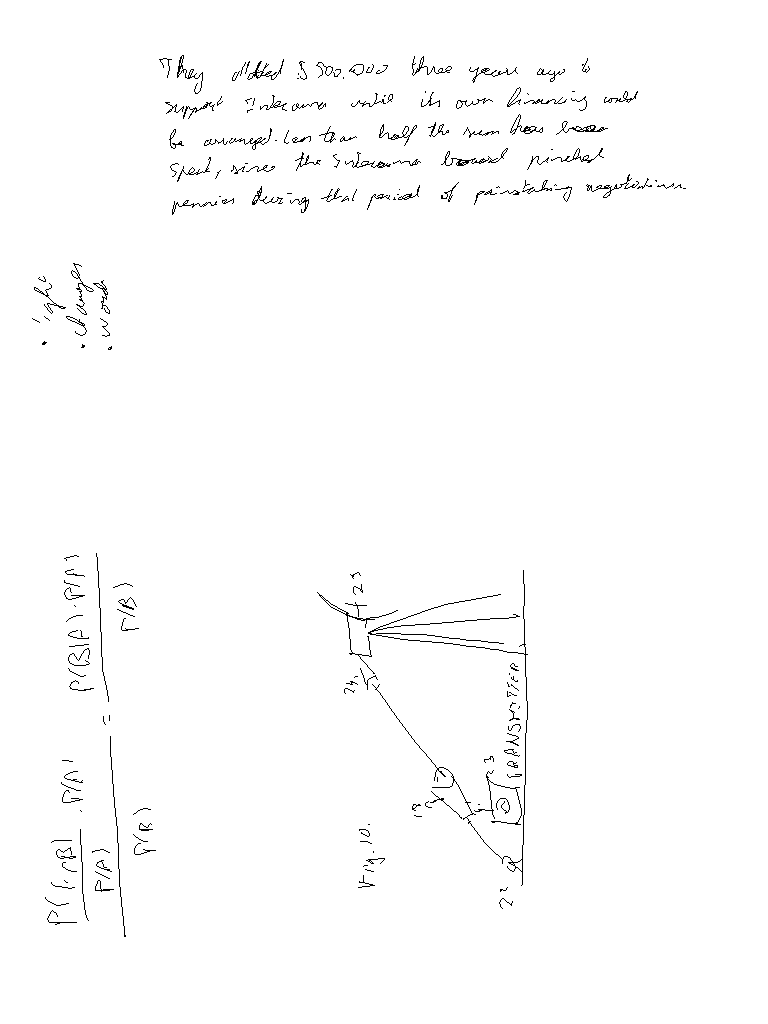 They allotted $ 500.000 three years ago to
support Intercosma until its own financing could
be arranged. Less than half the sum has been
spent, since the Intercosma board pinched
pennies during that period of painstaking negotiations
• changes
• words
P(B|A) . P(A)
P(B)
=
. P(A)
P(A)
P(B)
Fig. 10.
25
24.
18
23
TRANSMITTER
22